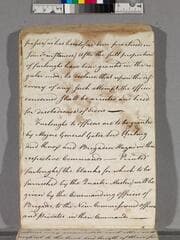 passes, as has heretofore been practiced in
some Instances; After the full proportion
of furloughs have been granted in the re=
gular mode, he declares, that upon the dis=
covery of any such attempt, the officer
concerned shall be arrested and tried
for disobedience of orders —
Furloughs to officers are to be granted
by Major General Gates, Lord Stirling
and Howe, and Brigadier Hazen in their
respective Commands — Printed
furloughs (the blanks for which to be
furnished by the Quarter-Master) are to be
given by the Commanding officers of
Brigades, to the Non Commissioned officers
and Privates in their Command